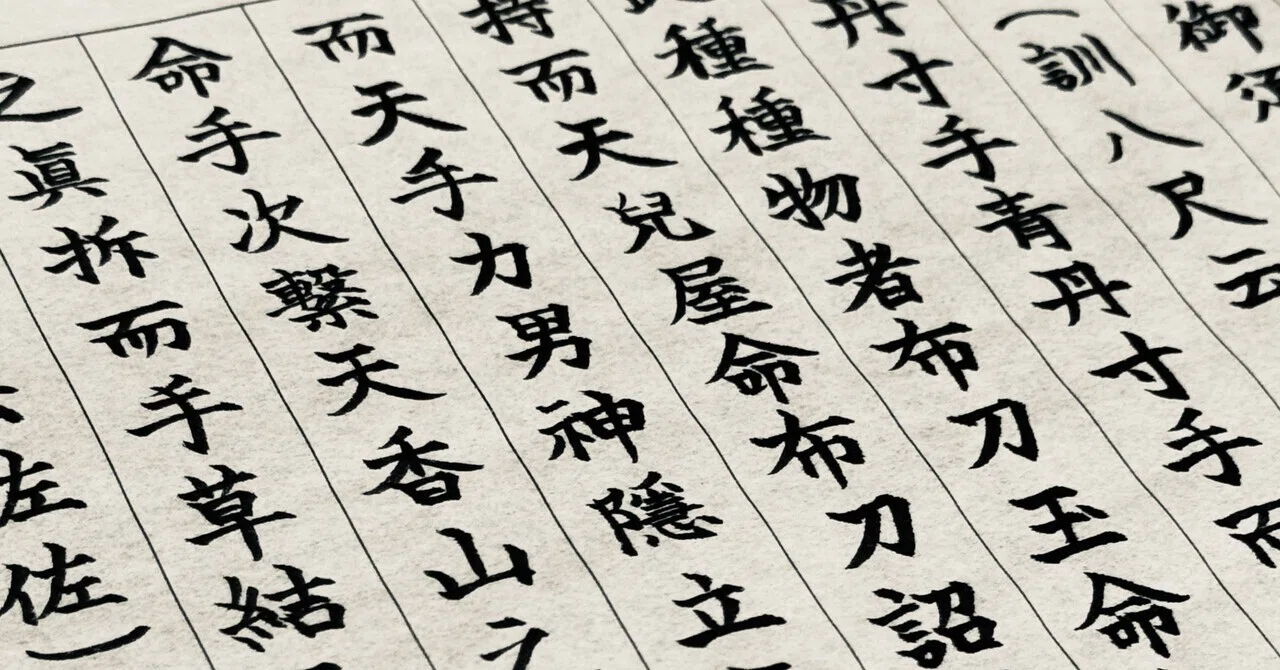 御
（訓八尺云
丹寸手青丹寸手而
種種物者布刀玉命
持而天兒屋命布刀詔
而天手力男神隱立
命手次繋天香山之
之眞拆而手草結
佐佐）